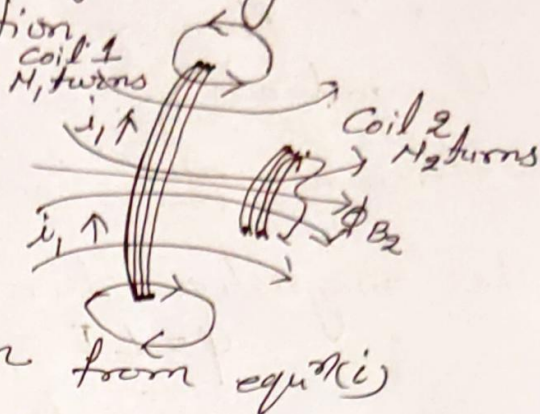 tion
Coil 1
N₁ turns
i₁ ↑
Coil 2
N₂ turns
i₁ ↑
ϕB₂
from equⁿ(i)